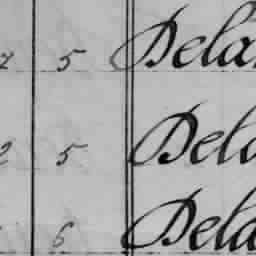 5 Dela
2 5 Dela
6 Dela